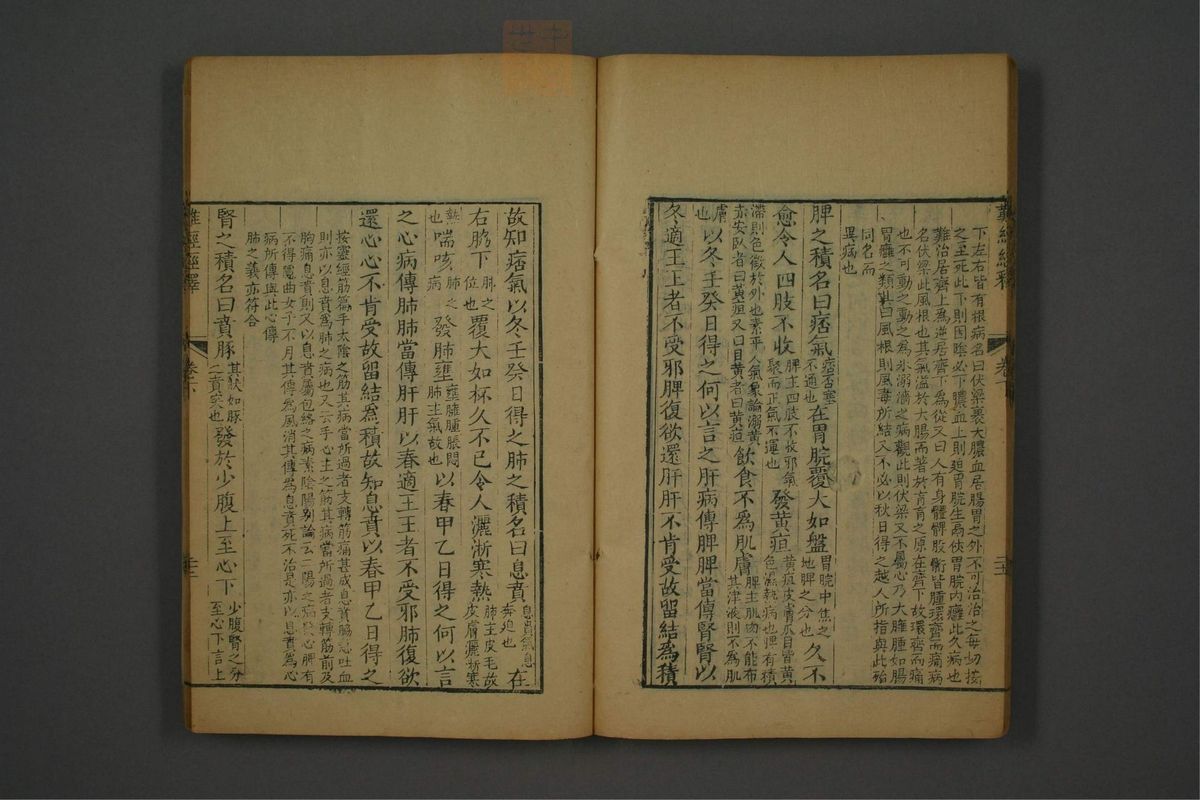 難經經釋 卷下
下左右皆有根病名曰伏梁裹大膿血居腸胃之外不可治治之每切按
之至死此下則因陰必下膿血上則迫胃脘生鬲俠胃脘內癰此久病也
難治居齊上為逆居齊下為從又曰人有身體髀股䯒皆腫環齊而痛病
名伏梁此風根也其氣溢於大腸而著於肓肓之原在齊下故環齊而痛
也不可動之動之為水溺濇之病觀此則伏梁又不屬心乃大癰腫如腸
胃癰之類其曰風根則風毒所結又不必以秋日得之越人所指與此殆
同名而
異病也
脾之積名曰痞氣痞否塞不通也在胃脘覆大如盤胃脘中焦之地脾之分也久不
愈令人四肢不收脾主四肢不收邪氣聚而正氣不運也發黃疸黃疸皮膚爪目皆黃色濕熱病也脾有積
滯則色徵於外也素平人氣象論溺黃赤安臥者曰黃疸又曰目黃者曰黃疸飲食不為肌膚脾主肌肉不能布其津液則不為肌
膚也以冬壬癸日得之何以言之肝病傳脾脾當傳腎腎以
冬適王王者不受邪脾復欲還肝肝不肯受故留結為積
故知痞氣以冬壬癸日得之肺之積名曰息賁息賁氣息奔迫也在
右脇下肺之位也覆大如杯久不已令人灑淅寒熱肺主皮毛故皮膚灑淅寒
熱也喘咳肺之病發肺壅壅臃腫脹悶肺主氣故也以春甲乙日得之何以言
之心病傳肺肺當傳肝肝以春適王王者不受邪肺復欲
還心心不肯受故留結為積故知息賁以春甲乙日得之
按靈經筋篇手太陰之筋其病當所過者支轉筋痛甚成息賁脇急吐血
則亦以息賁為肺之病也又云手心主之筋其病當所過者支轉筋前及
胸痛息賁則又以息賁屬包絡之病素陰陽別論云二陽之病發心脾有
不得隱曲女子不月其傳為風消其傳為息賁死不治是亦以息賁為心
病所傳與此心傳
肺之義亦符合
腎之積名曰賁豚其狀如豚之賁突也發於少腹上至心下少腹腎之分至心下言上
難經經釋 卷下